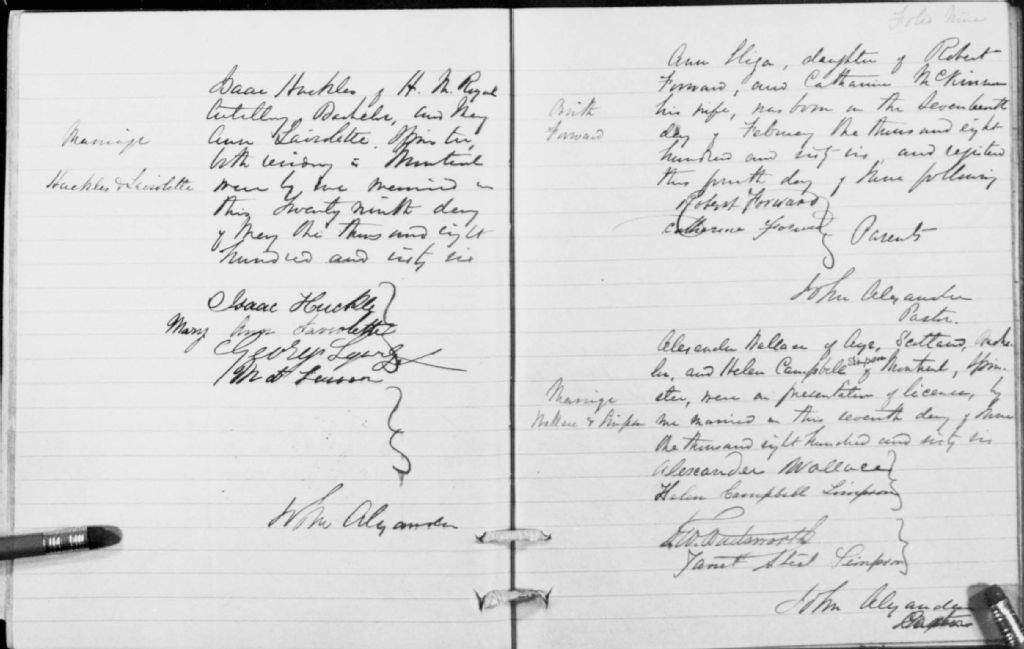 Marriage
Huckles & Laviolette
Isaac Huckles of H. M. Royal
Artillery, Bachelor, and May
Ann Laviolette, Spinster,
both residing in Montreal
were by me married on
this twenty ninth day
of May One thousand eight
hundred and sixty six
Isaac Huckle
Mary Ann Laviolette
George
John Alexander
Folio Nine
Birth
Forward
Ann Eliza, daughter of Robert
Forward, and Catharine McKinnon
his wife, was born on the Seventeenth
day of February One thousand eight
hundred and sixty six, and registered
this fourth day of June following
Robert Forward
Catherine Forward
Parents
John Alexander
Pastor.
Marriage
Wallace & Simpson
Alexander Wallace of Ayr, Scotland, Bache-
lor, and Helen Campbell Simpson of Montreal, Spin-
ster, were on presentation of license, by
me married on this seventh day of June
One thousand eight hundred and sixty six
Alexander Wallace
Helen Campbell Simpson
Wadsworth
Janet Steel Simpson
John Alexander
Pastor